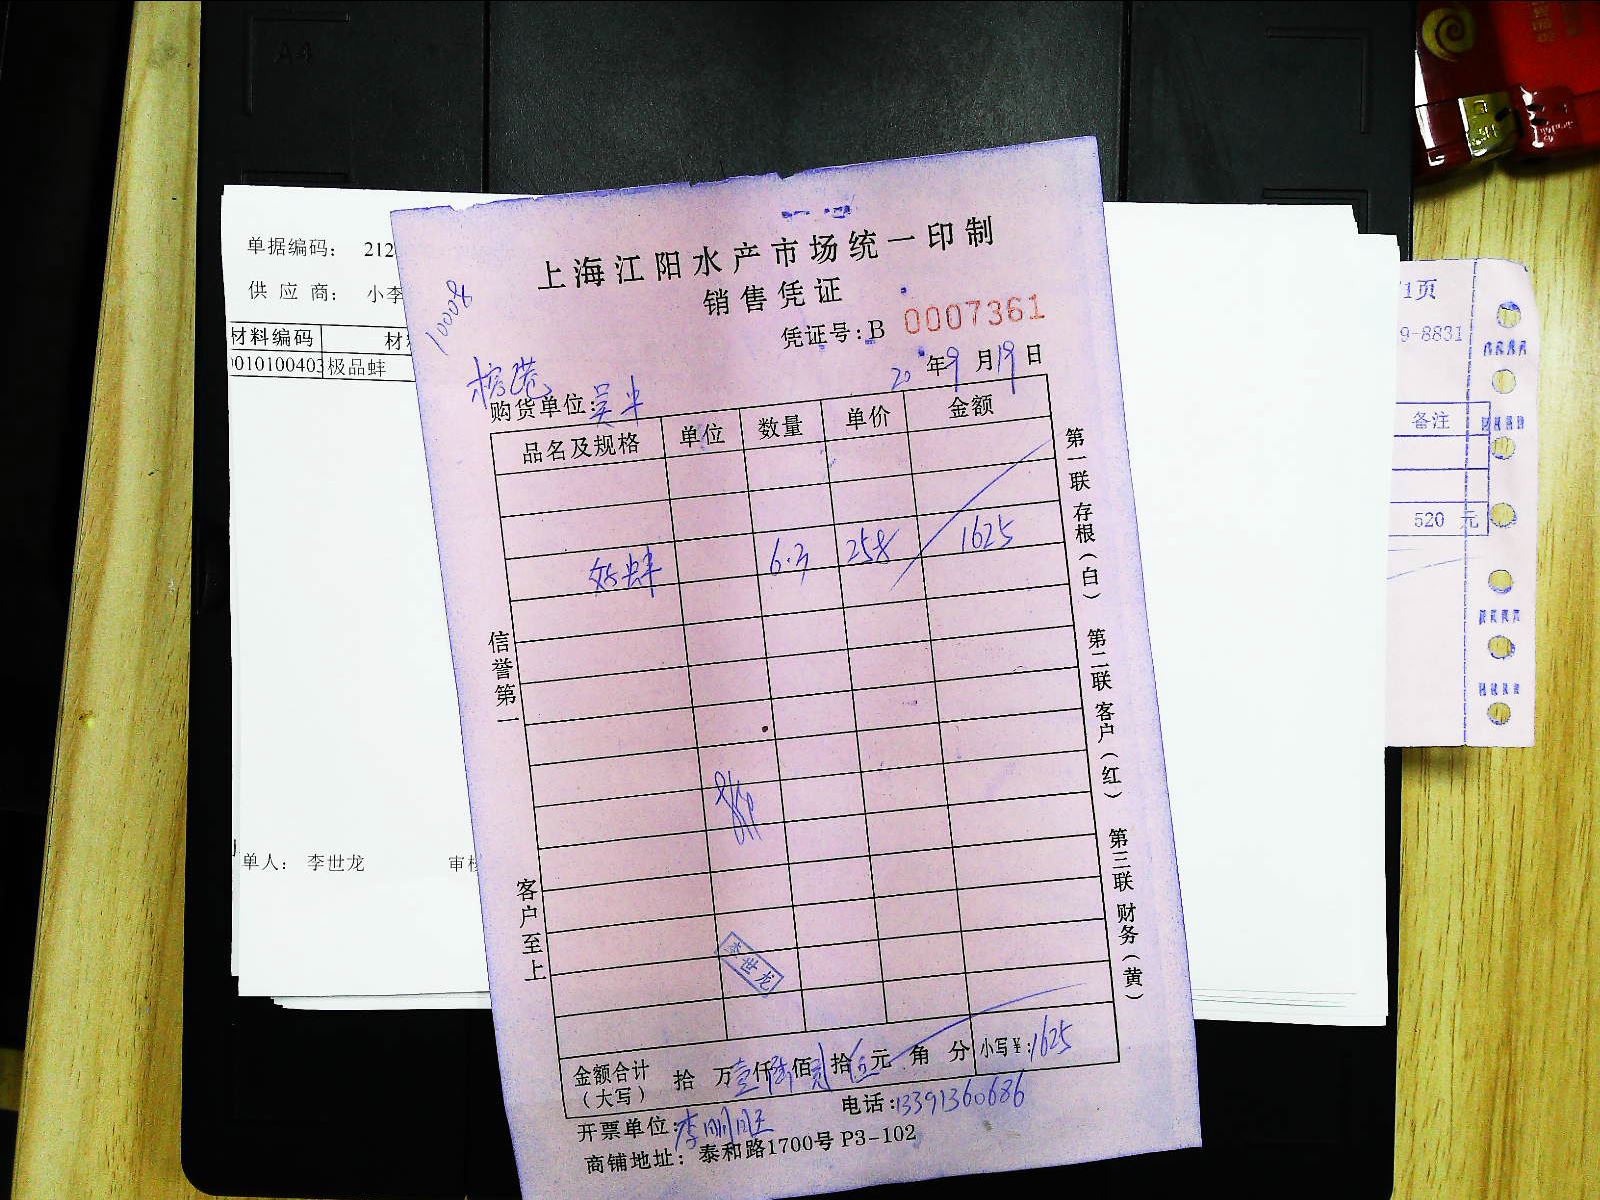 A4
单据编码： 212
供 应 商： 小李
材料编码 材料
0010100403 极品蚌
单人： 李世龙 审核
1页
9-8831
备注
520 元
10008
上海江阳水产市场统一印制
销售凭证
凭证号：B 0007361
20 年 9 月 19 日
购货单位：
品名及规格 单位 数量 单价 金额
好蚌 6.3 258 1625
信誉第一
客户至上
第一联 存根（白）
第二联 客户（红）
第三联 财务（黄）
李世龙
金额合计（大写） 拾 万 壹 仟 陆 佰 贰 拾 伍 元 角 分 小写￥：1625
开票单位：李明旺 电话：13391360686
商铺地址：泰和路1700号 P3-102